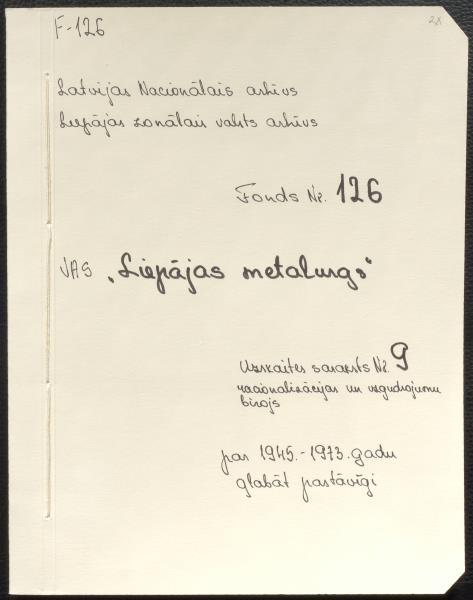 F-126
Latvijas Nacionālais arhīvs
Liepājas zonālais valsts arhīvs
Fonds Nr. 126
VAS „Liepājas metalurgs"
Uzskaites saraksts Nr. 9
racionalizācijas un izgudrojumu
birojs
par 1945.-1973. gadu
glabāt pastāvīgi